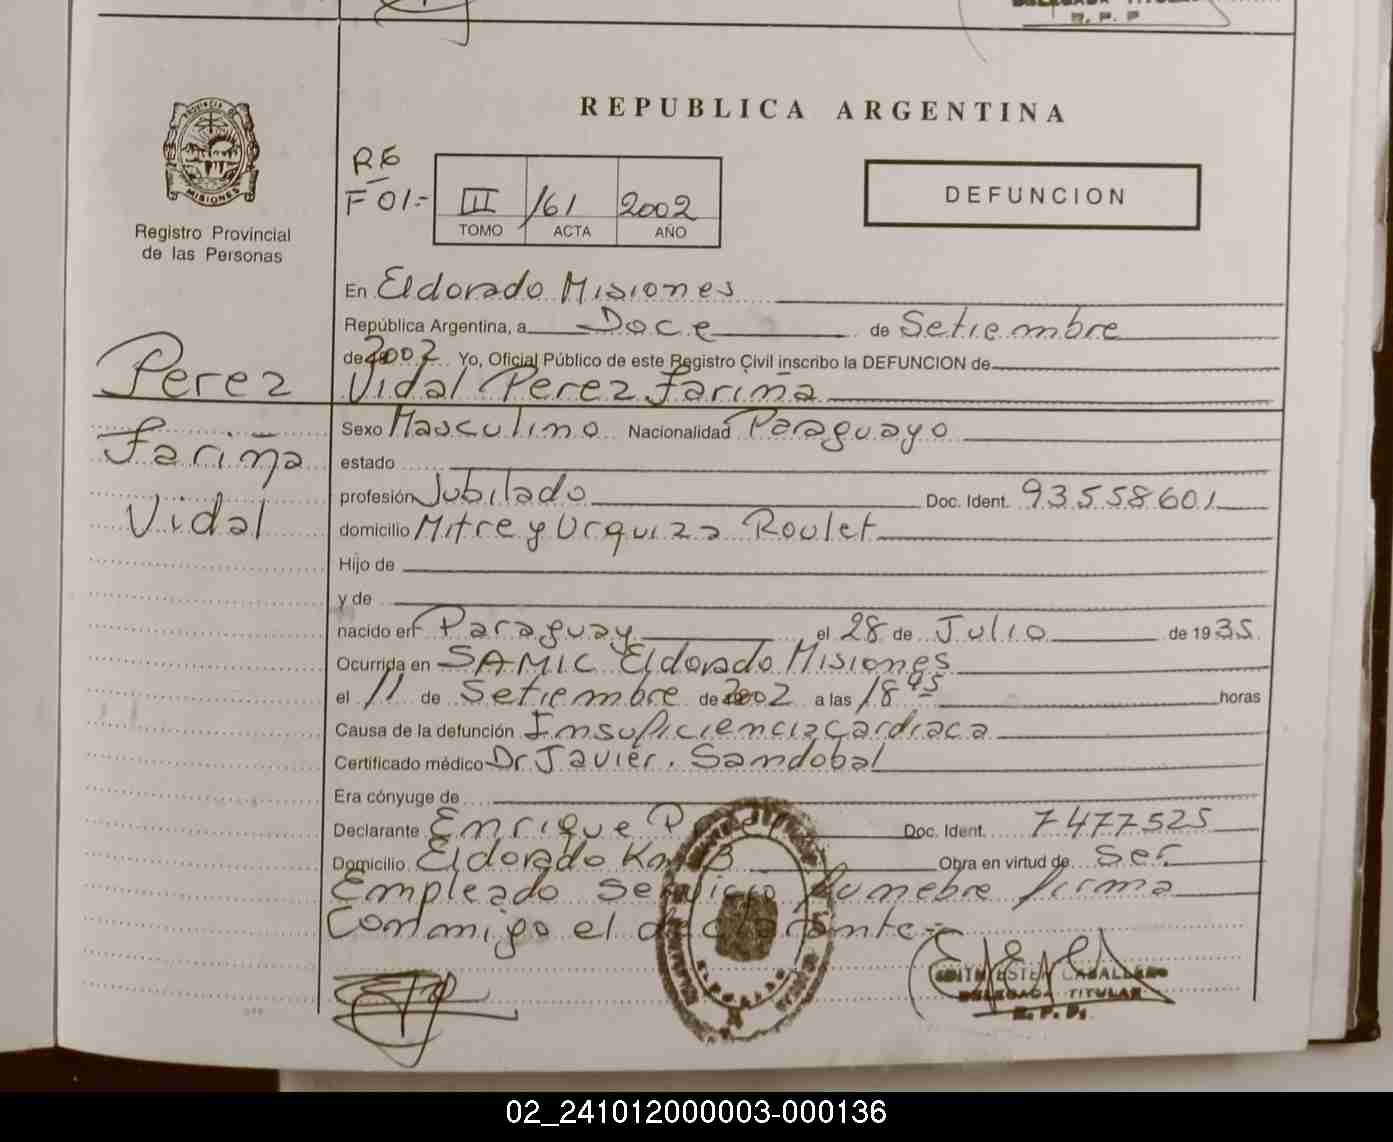 DELEGADA TITULAR
R. P. P
PROVINCIA DE
MISIONES
Registro Provincial
de las Personas
REPUBLICA ARGENTINA
RE
F 01.-
III /61 2002
TOMO ACTA AÑO
DEFUNCION
En Eldorado Misiones
República Argentina, a Doce de Setiembre
de 2002 Yo, Oficial Público de este Registro Civil inscribo la DEFUNCION de
Vidal Perez Fariña
Perez
Fariña
Vidal
Sexo Masculino Nacionalidad Paraguayo
estado
profesión Jubilado Doc. Ident. 93558601
domicilio Mitre y Urquiza Roulet
Hijo de
y de
nacido en Paraguay el 28 de Julio de 1935
Ocurrida en SAMIC Eldorado Misiones
el 11 de Setiembre de 2002 a las 18 45 horas
Causa de la defunción Insuficiencia Cardiaca
Certificado médico Dr Javier. Sandobal
Era cónyuge de
Declarante Enrique Doc. Ident. 7477525
Domicilio Eldorado Obra en virtud de Ser
Empleado Servicio funebre firma
Conmigo el declarante.-
ESTER CABALLERO
DELEGADA TITULAR
R. P. P.
02_241012000003-000136